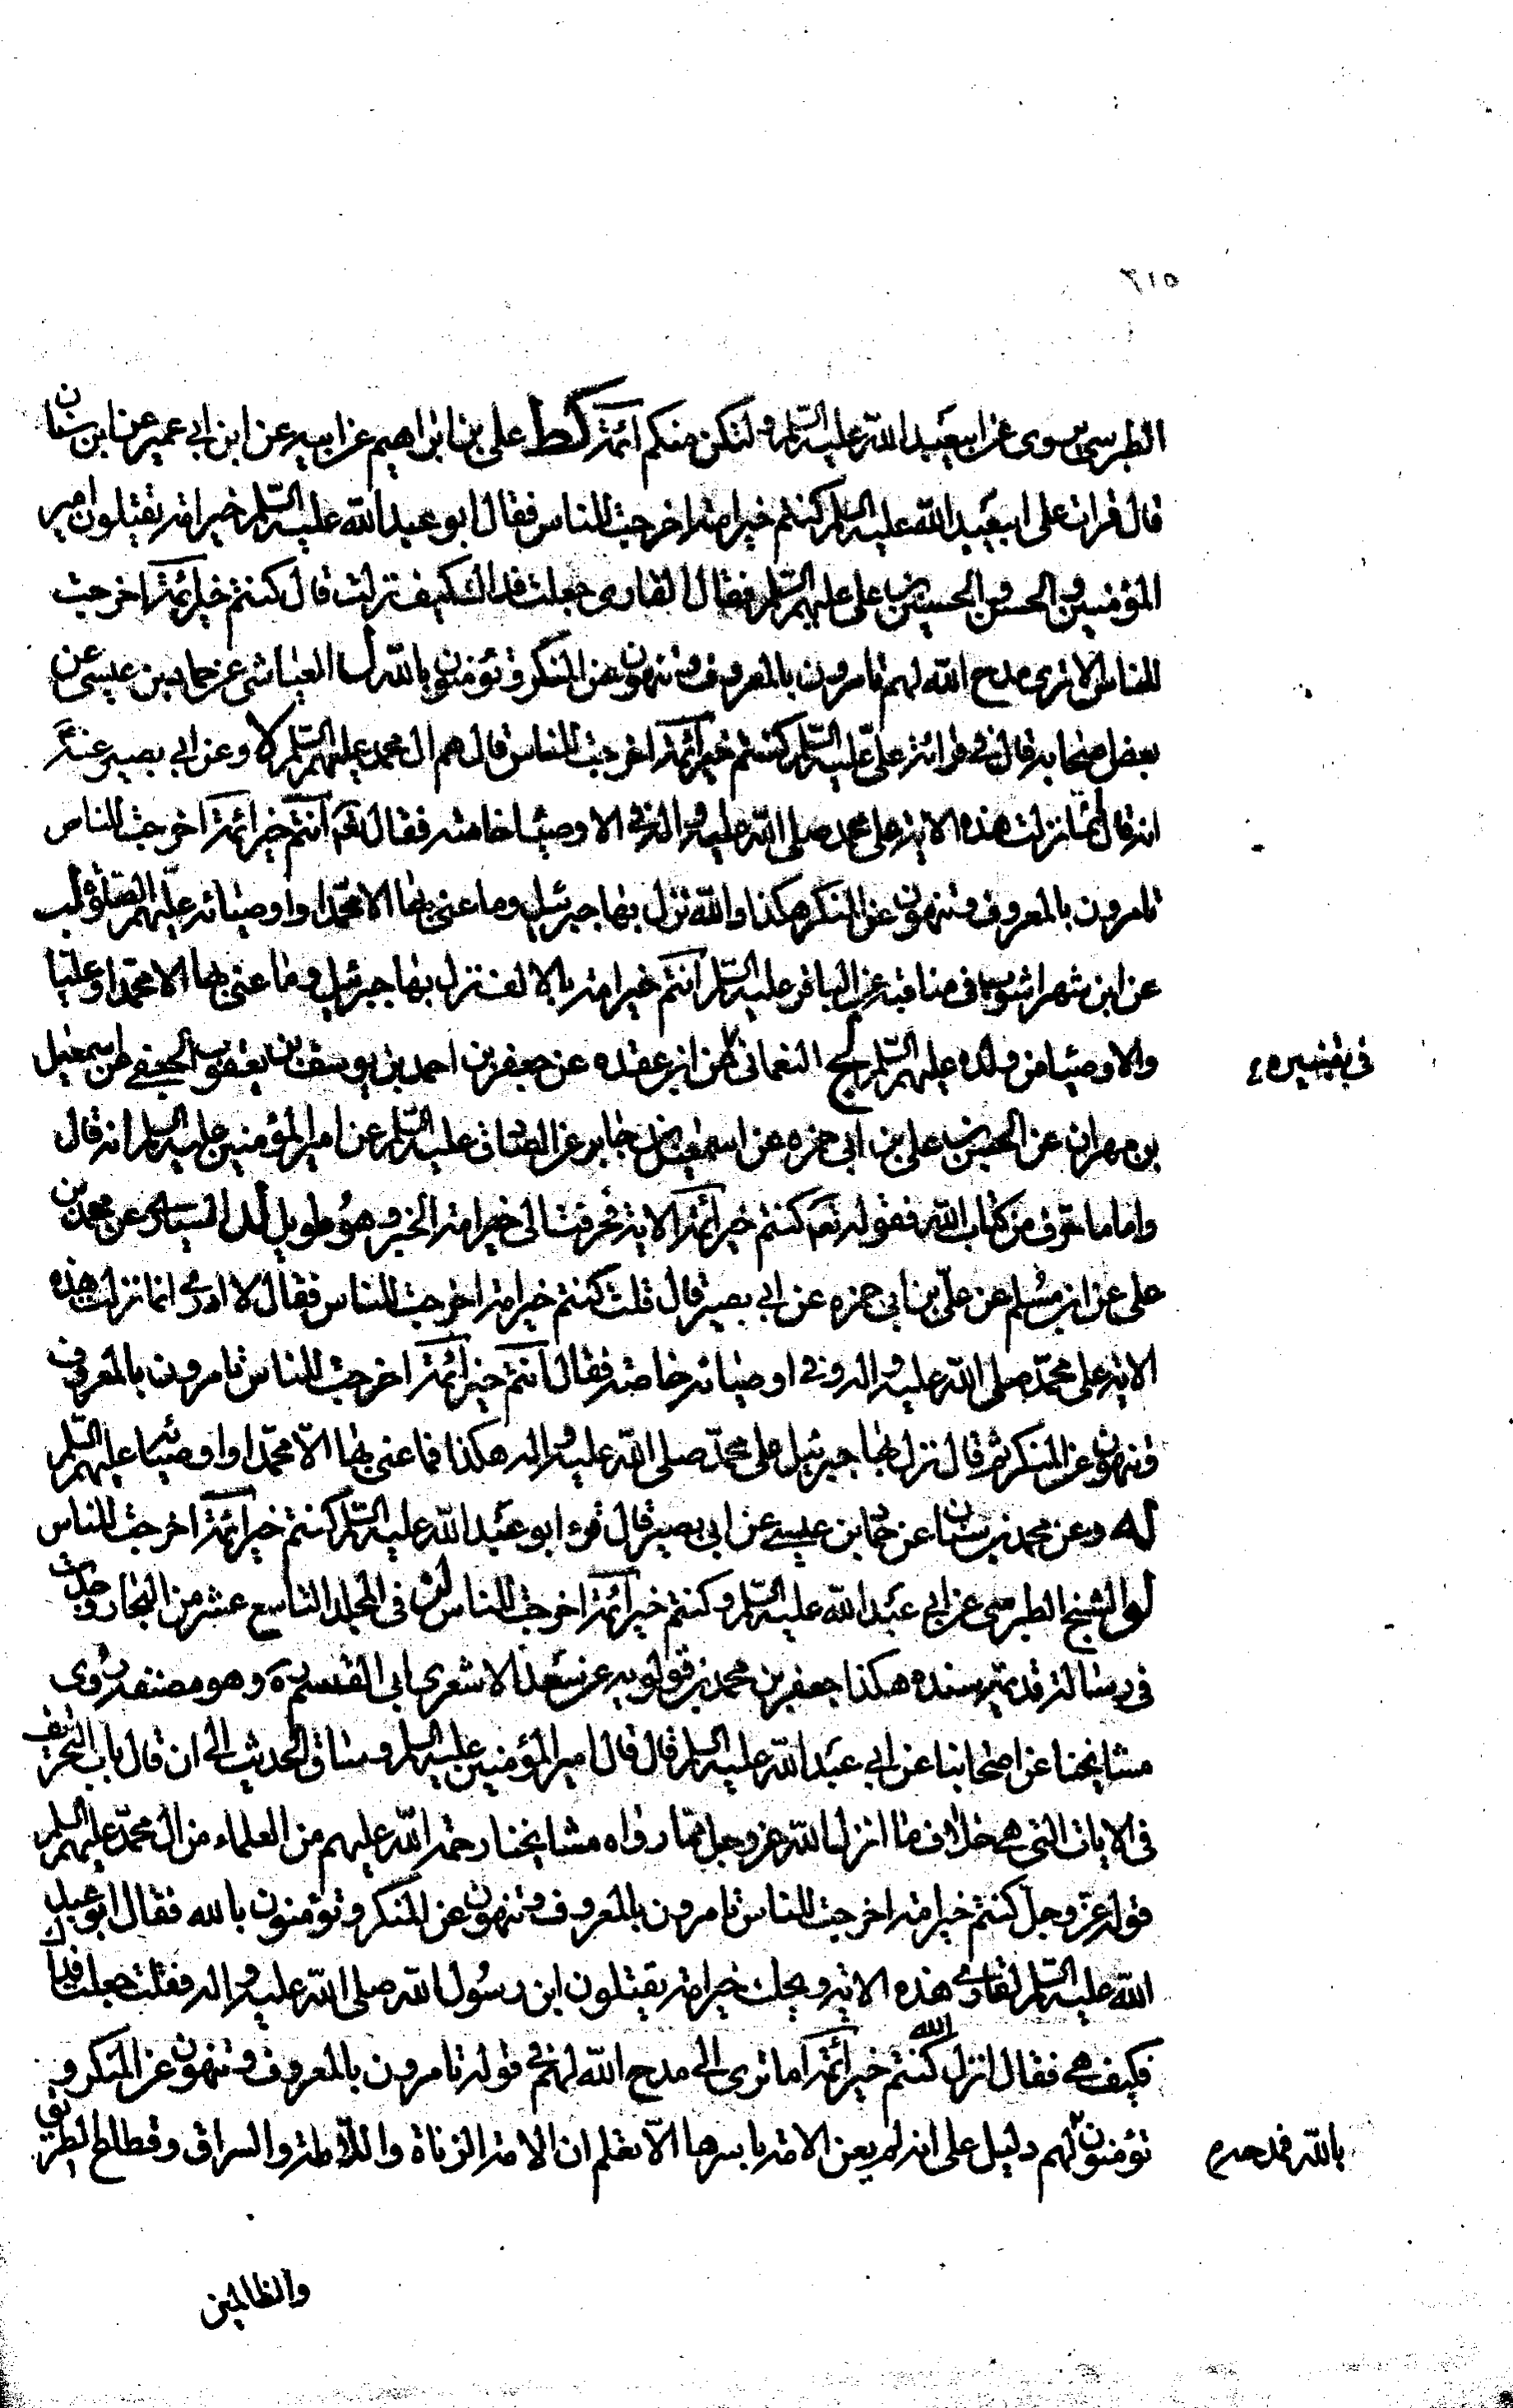 ٢١٥
الطبرسي يروى عن ابيعبد الله عليه السلم ولتكن منكم ائمة كط علي بن ابراهيم عن ابيه عن ابن ابي عمير عن ابن سنان
قال قرات على ابيعبد الله عليه السلم كنتم خير امة اخرجت للناس فقال ابو عبد الله عليه السلم خير امة يقتلون امير
المؤمنين والحسن والحسين بن على عليهم السلم فقال القارى جعلت فداك كيف نزلت قال كنتم خير ائمة اخرجت
للناس الا ترى مدح الله لهم تامرون بالمعروف وتنهون عن المنكر وتؤمنون بالله ل العياشى عن حماد بن عيسى عن
بعض اصحابه قال فى قرائة علي عليه السلم كنتم خير ائمة اخرجت للناس قال هم ال محمد عليهم السلم لا وعن ابي بصير عنه
انه قال انما نزلت هذه الاية على محمد صلى الله عليه واله فى الاوصيا خاصة فقال تعه انتم خير ائمة اخرجت للناس
تامرون بالمعروف وتنهون عن المنكر هكذا والله نزل بها جبرئيل وما عنى بها الا محمدا واوصيائه عليهم الصلوة لب
عن ابن شهراشوب فى مناقبه عن الباقر عليه السلم انتم خير امة بالالف نزل بها جبرئيل وما عنى بها الا محمدا وعليا
والاوصيا من ولده عليهم السلم لج النعمانى عن ابن عقده عن جعفر بن احمد بن يوسف بن يعقوب الجعفي عن اسمعيل
فى تفسيره
بن مهران عن الحسن بن على بن ابى حمزه عن اسمعيل بن جابر عن الصادق عليه السلم عن امير المؤمنين عليه السلم انه قال
واما ما حرف من كتاب الله فقوله تعه كنتم خير ائمة الاية فحرفت الى خير امة الخبر وهو طويل لد السيارى عن محمد بن
على عن ابن مسلم عن علي بن ابى حمزه عن ابي بصير قال قلت كنتم خير امة اخرجت للناس فقال لا ادرى انما نزلت هذه
الاية على محمد صلى الله عليه واله وفى اوصيائه خاصة فقال انتم خير ائمة اخرجت للناس تامرون بالمعروف
وتنهون عن المنكر ثم قال نزل بها جبرئيل على محمد صلى الله عليه واله هكذا فما عنى بها الا محمدا واوصيائه عليهم السلم
له وعن محمد بن سنان عن حماد بن عيسى عن ابى بصير قال قرء ابو عبد الله عليه السلم كنتم خير ائمة اخرجت للناس
لو الشيخ الطبرسى عن ابى عبد الله عليه السلم وكنتم خير ائمة اخرجت للناس لز فى المجلد التاسع عشر من البحار وجدت
فى رسالة قديمة سنده هكذا جعفر بن محمد بن قولويه عن سعد الاشعرى ابى القسم ره وهو مصنفه روى
مشايخنا عن اصحابنا عن ابى عبد الله عليه السلم قال قال امير المؤمنين عليه السلم وساق الحديث الى ان قال باب التحريف
فى الايات التى هى خلاف ما انزل الله عز وجل مما رواه مشايخنا رحمة الله عليهم من العلماء من ال محمد عليهم السلم
قوله عز وجل كنتم خير امة اخرجت للناس تامرون بالمعروف وتنهون عن المنكر وتؤمنون بالله فقال ابو عبد
الله عليه السلم لقارئ هذه الاية ويحك خير امة يقتلون ابن رسول الله صلى الله عليه واله فقلت جعلت فداك
فكيف هى فقال انزل الله كنتم خير ائمة اما ترى الى مدح الله لهم فى قوله تامرون بالمعروف وتنهون عن المنكر و
تؤمنون لهم دليل على انه لم يعن الامة باسرها الا تعلم ان الامة الزناة واللاطة والسراق وقطاع الطريق
بالله فمدحه
والظالمين